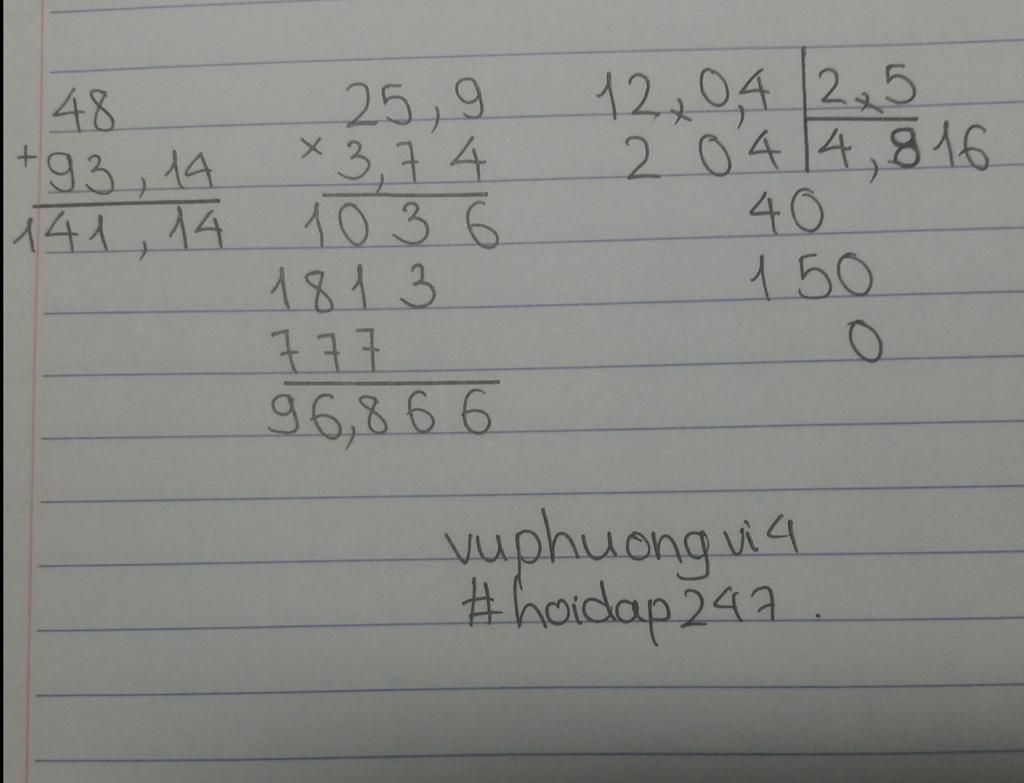 48
+ 93,14
141,14
25,9
× 3,74
1036
1813
777
96,866
12,0,4 | 2,5
204 | 4,816
40
150
0
vuphuongvi4
#hoidap247.